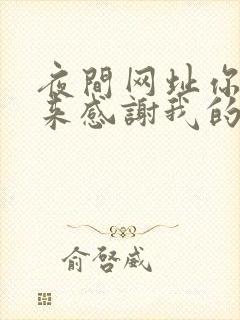 夜間网址你
来感謝我的
俞啓威